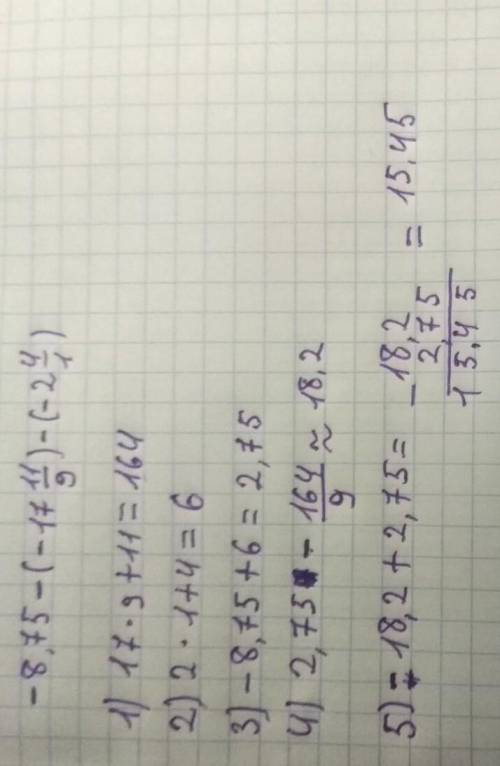 -8,75-(-17 11/9)-(-2 4/1)
1) 17·9+11=164
2) 2·1+4=6
3) -8,75+6=2,75
4) 2,75 - 164/9 ≈ 18,2
5) -18,2+2,75= -18,2 = 15,45
2,75
15,45